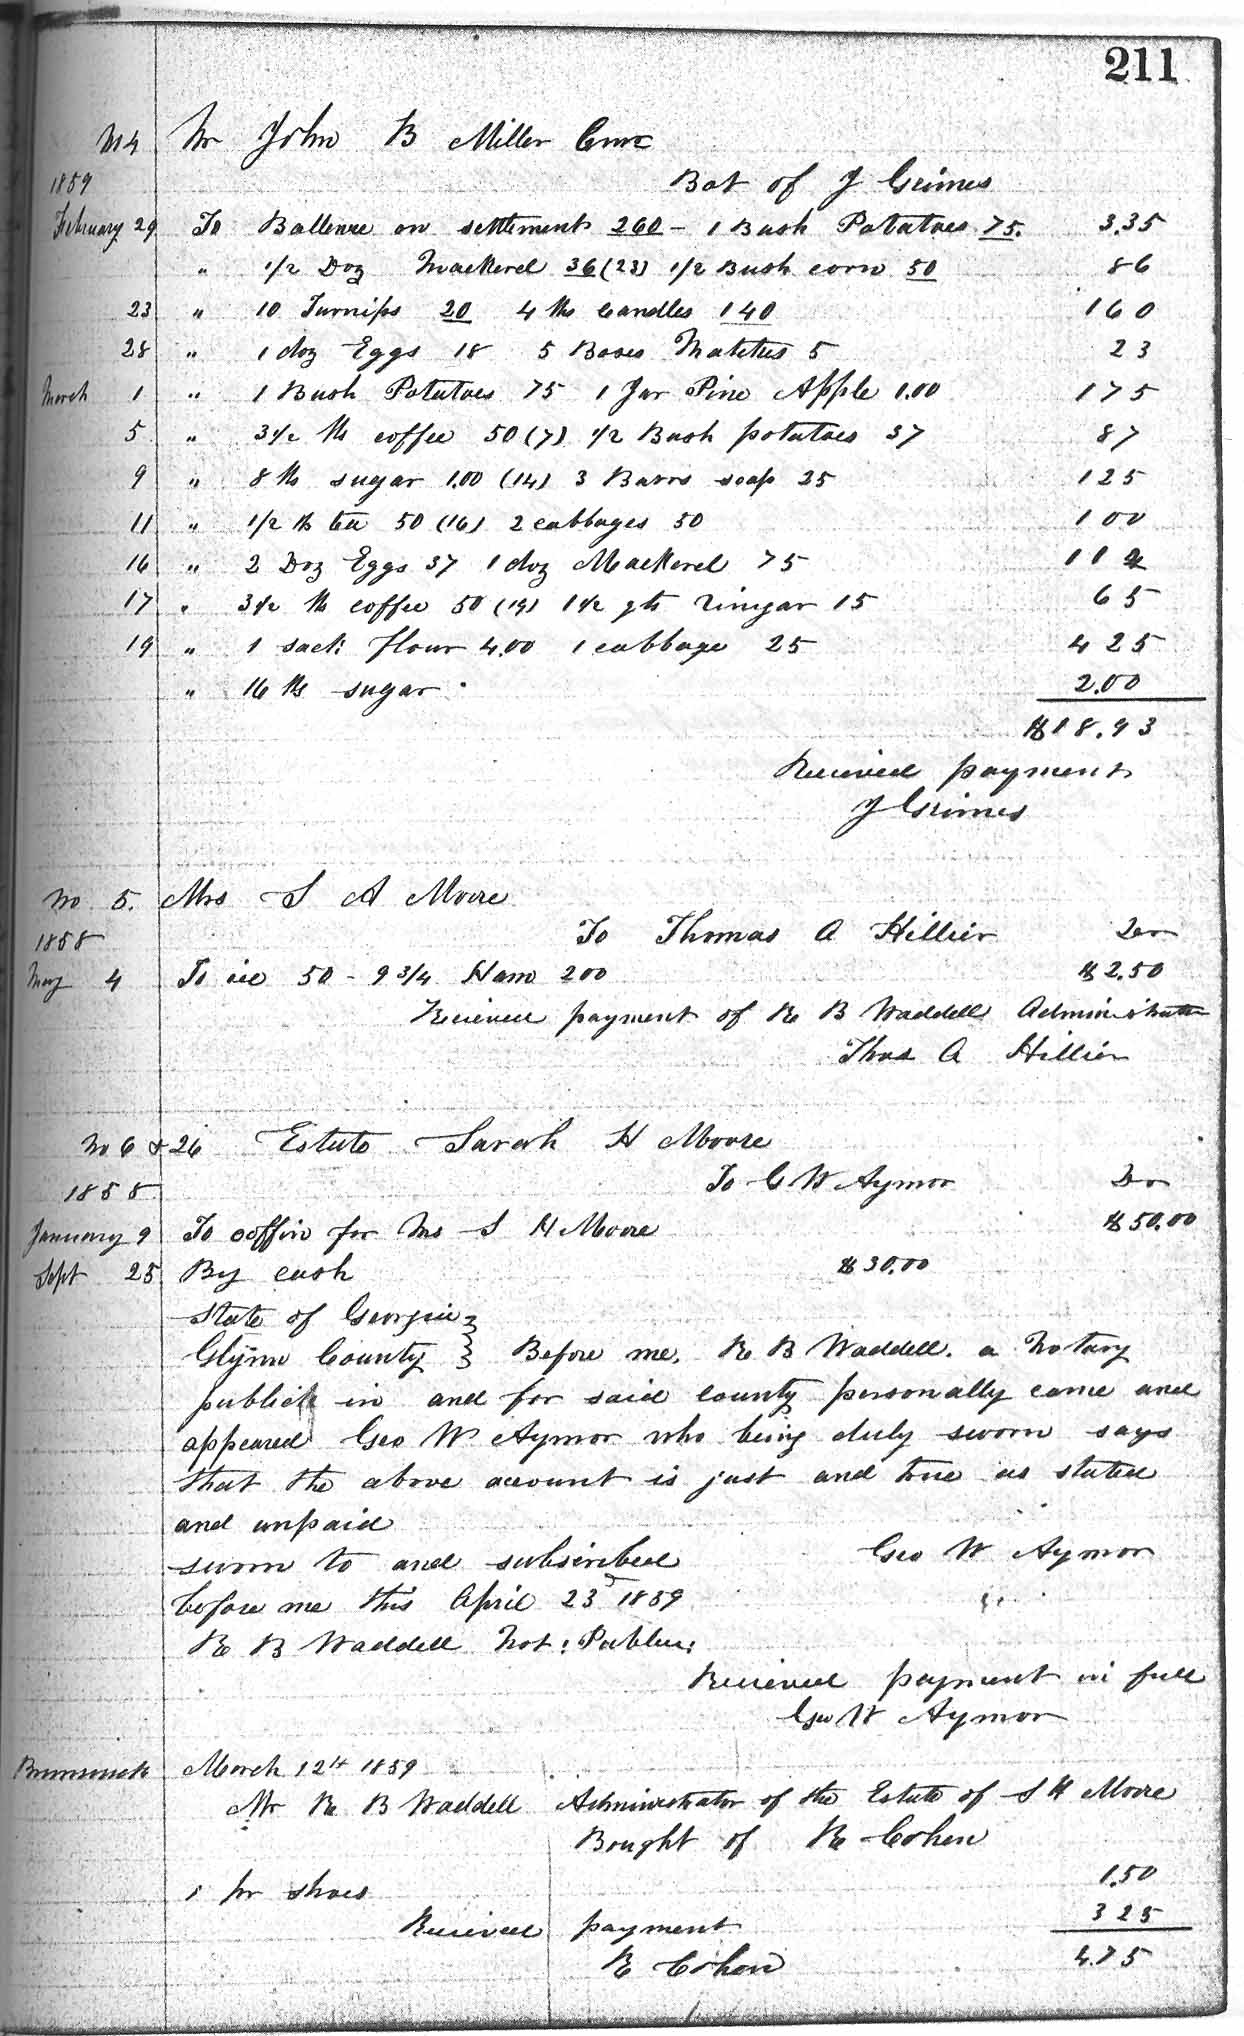 211
No 4 Mr John B Miller
1859 Bot of J Grimes
February 29 To Ballence on settlement 260 - 1 Bush Potatoes 75. 3.35
" 1/2 Doz Mackerel 36 (23) 1/2 Bush corn 50 86
23 " 10 Turnips 20 4 lbs Candles 140 160
28 " 1 doz Eggs 18 5 Boxes Matches 5 23
March 1 " 1 Bush Potatoes 75 1 Jar Pine Apple 1.00 175
5 " 3 1/2 lb coffee 50 (7) 1/2 Bush potatoes 37 87
9 " 8 lb sugar 1.00 (14) 3 Barrs soap 25 125
11 " 1/2 lb tea 50 (16) 2 cabbages 50 100
16 " 2 Doz Eggs 37 1 doz Mackerel 75 112
17 " 3 1/2 lb coffee 50 (19) 1 1/2 qts vinigar 15 65
19 " 1 sack flour 4.00 1 cabbage 25 425
" 16 lbs sugar 2.00
$18.93
Recieved payment
J Grimes
No 5. Mrs S A Moore
1858 To Thomas A Hillier Dr
May 4 To ice 50 - 9 3/4 Ham 200 $2.50
Recieved payment of R B Waddell Administrator
Thos A Hillier
No 6 & 26 Estate Sarah H Moore
1858 To G W Aymor Dr
January 9 To coffin for Mrs S H Moore $50.00
Sept 25 By cash $30.00
State of Georgia }
Glynn County } Before me, R B Waddell. a Notary
publick in and for said county personally came and
appeared Geo W Aymor who being duly sworn says
that the above account is just and true as stated
and unpaid
sworn to and subscribed Geo W Aymor
before me this April 23d 1859 "
R B Waddell Not: Public:
Recieved payment in full
Geo W Aymor
Brunswick March 12th 1859
Mr R B Waddell Administrator of the Estate of S H Moore
Bought of R Cohen
1.50
1 pr shoes
325
Recieved payment
4.75
R Cohen